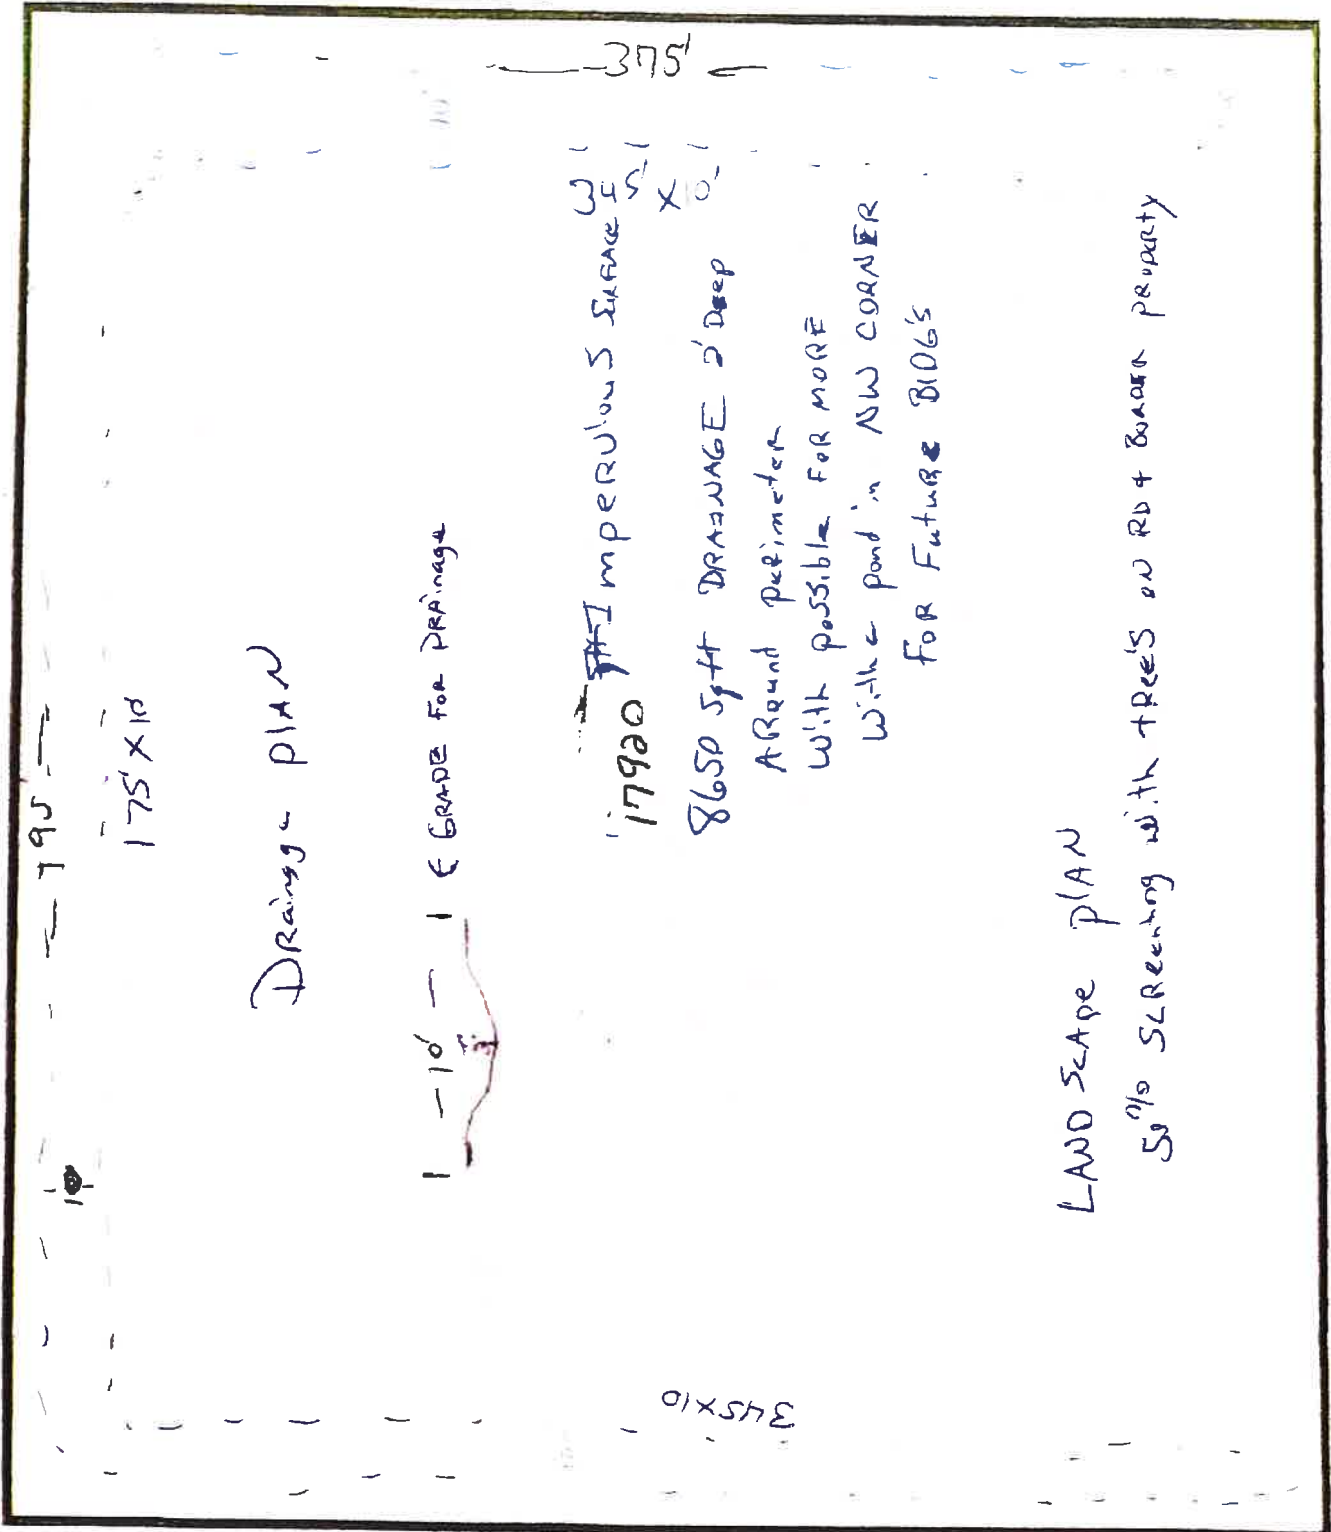 375'
195
175' X 10'
10
DRAingge plAN
10'
GRADE FOR DRAinage
345' X 10'
ImpeRUious SurFace
17920
8650 Sqft DRAINAGE 2' Deep
ARound perimeter
With possible FOR MORE
With a pond in NW CORNER
FOR Future BlDG'S
345X10
LANDSCApe plAN
50% SCReening with tRee'S on RD + Border pRopeRty